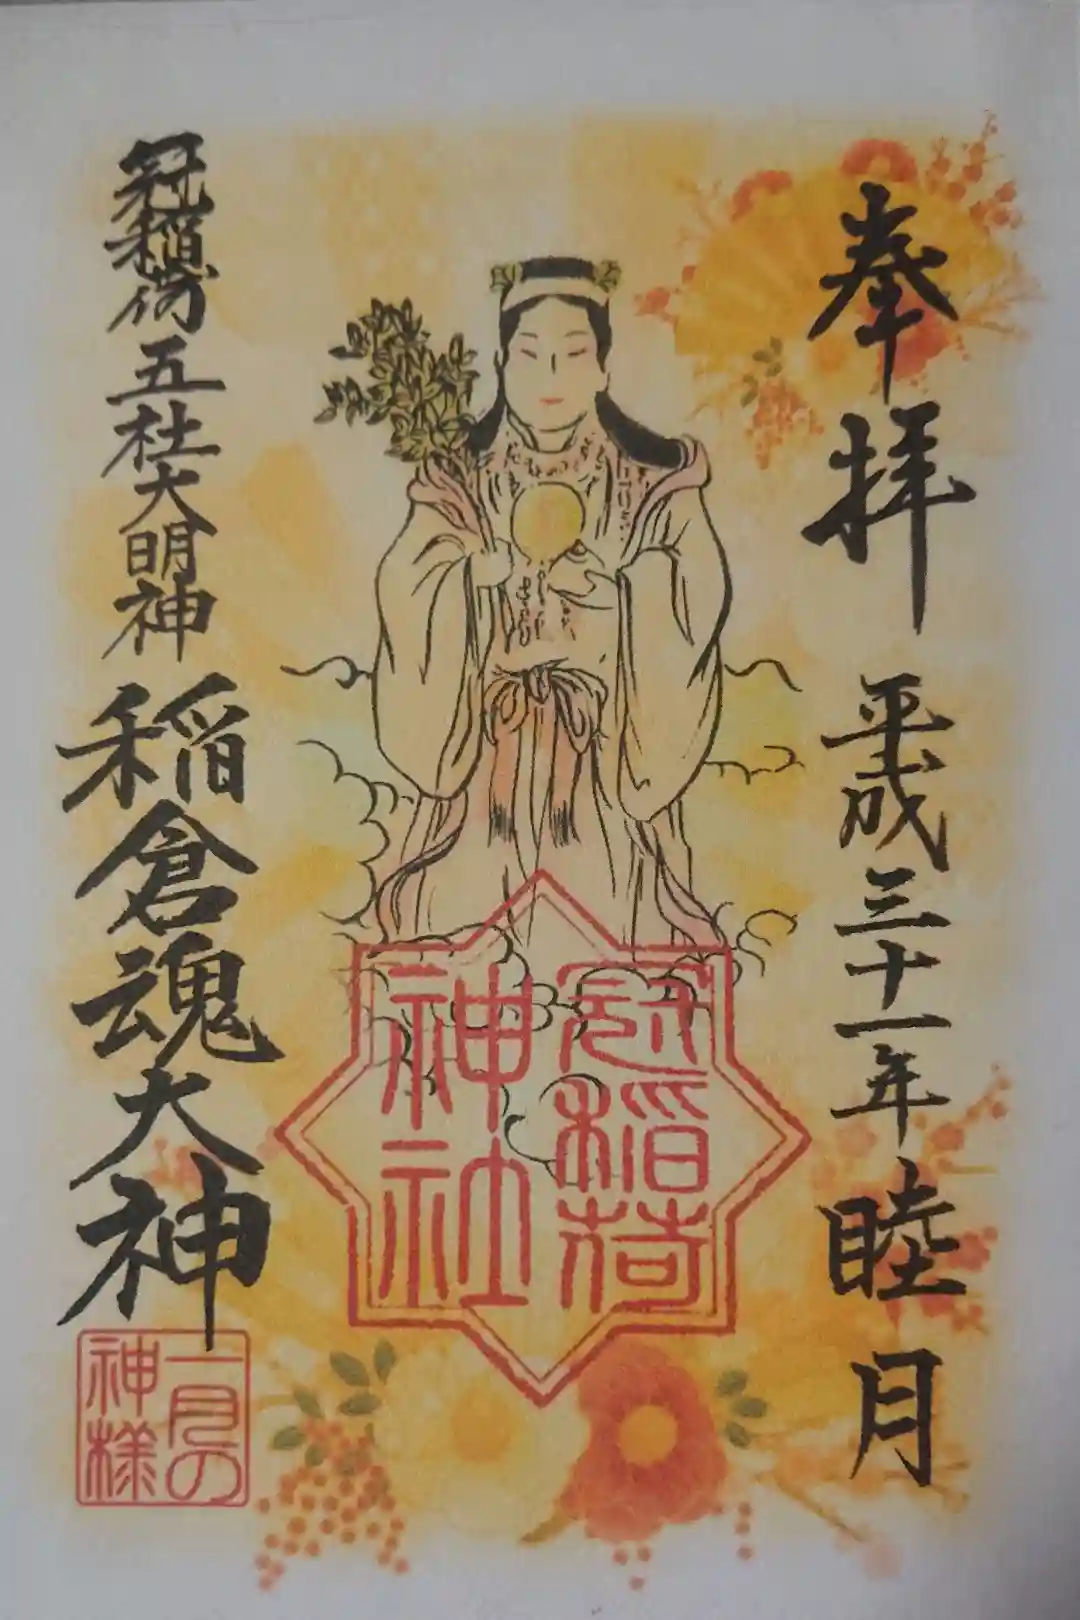 奉拝
平成三十一年睦月
冠稲荷
神社
冠稲荷五社大明神
稲倉魂大神
一月の
神様